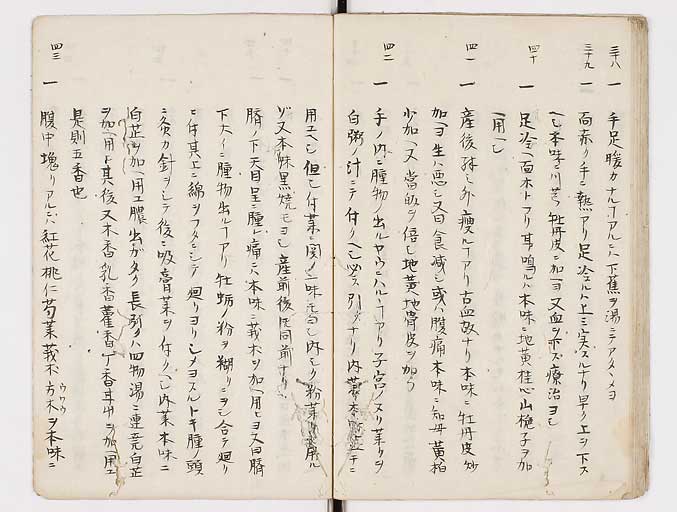 三十八 一 手足暖カナルヿアルニハ下蕉ヲ湯ニテアタヽメヨ
三十九 一 面赤ク手ニ熱アリ足冷ルハ上ミ実スルナリ早ク上ヲ下ス
ヘシ本味ニ川芎牡丹皮ニ加ヨ又血ヲ療治ヨシ
四十 一 足冷ヘ面ホトフリ耳鳴ハ本味ニ地黄桂心山梔子ヲ加
用ヘシ
四一 一 産後殊ノ外瘦ルヿアリ古血故ナリ本味ニ牡丹皮炒
加ヨ生ハ悪シ又曰食減シ或ハ腹痛本味ニ知母黄柏
少加ヘ又當皈ヲ倍シ地黄地骨皮ヲ加ウ
四二 一 子ノ内ニ腫物ノ出ルヤウニハルヿアリ子宮ノスリ薬リヲ
白粥ノ汁ニテ付クヘシ必ス引ナリ内
用ユヘシ但シ付薬ニ一味シ内ヘシク粉薬用ル
又本味黒焼モヨシ産前後氏同前ナリ
臍ノ下天目呈ニ腫レ痛ニハ本味ニ莪朮ヲ加ヘ用ヒヨ又曰臍
下大イニ腫物出ルヿアリ牡蛎ノ粉ヲ糊リニヲシ合テ廻リ
ニ付其上ニ綿ヲフタニシテ廻リヨリシメヨスルトキ腫ノ頭
ニ灸カ針ヲシテ後ニ吸膏薬ヲ付クヘシ内薬本味ニ
白芷ヲ加ヘ用エ膿出ガタク長引クハ四物湯ニ連翹白芷
ヲ加ヘ用ヒ其後又木香乳香藿香丁香ヲ加ヘ用エ
是則五香也
四三 一 腹中塊リアルニハ紅花桃仁芍薬莪朮方木ヲ本味ニ
ウワウ